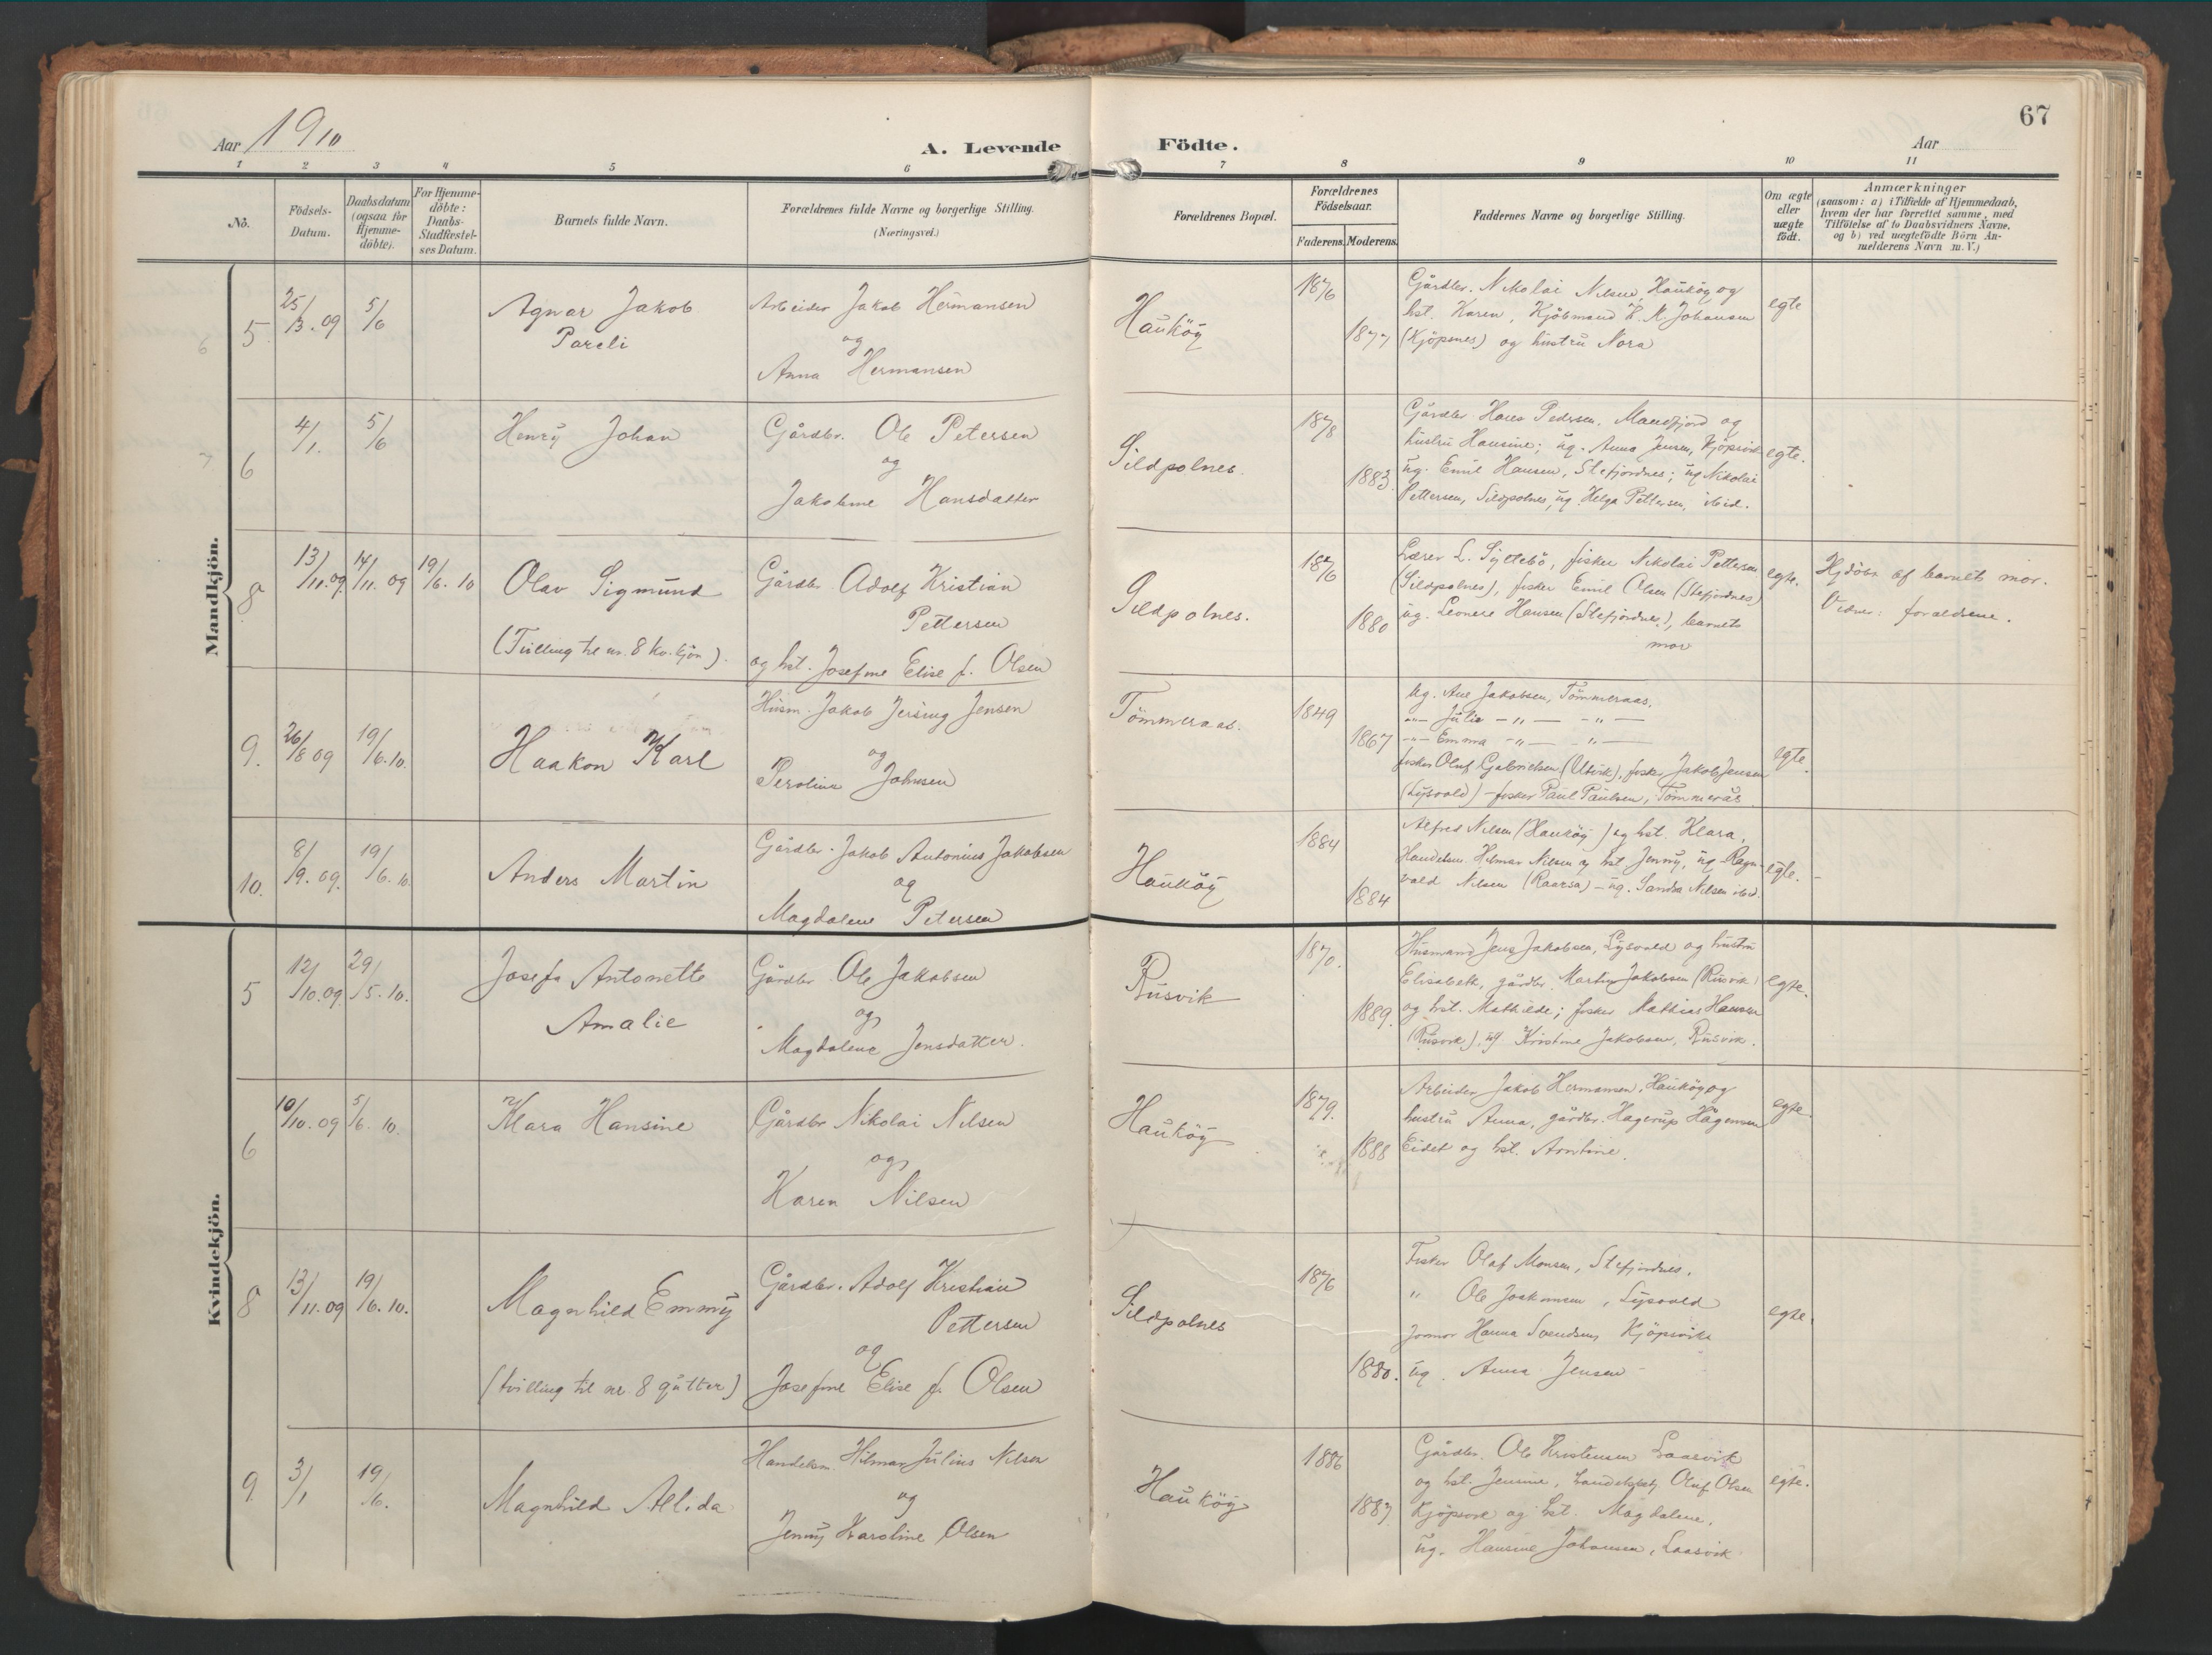 67
Aar 1910
A. Levende Födte.
Aar
1 2 3 4 5 6 7 8 9 10 11
No.
Födsels-Datum.
Daabsdatum (ogsaa for Hjemmedöbte).
For Hjemmedöbte: Daabs-Stadfæstelses Datum.
Barnets fulde Navn.
Forældrenes fulde Navne og borgerlige Stilling.
(Næringsvei.)
Forældrenes Bopæl.
Forældrenes Födselsaar.
Faderens. Moderens.
Faddernes Navne og borgerlige Stilling.
Om ægte eller uægte födt.
Anmærkninger
(saasom: a) i Tilfælde af Hjemmedaab,
hvem der har forrettet samme, med
Tilföielse af to Daabsvidners Navne,
og b) ved uægtefödte Börn Anmelderens Navn m. V.)
Mandkjön.
5
25/
/3.09
5/
/6
Agnar Jakob
Pareli
Arbeider Jakob Hermansen
og
Anna Hermansen
Hauköy
1876
1877
Gårdbr. Nikolai Nilsen, Hauköy og
hst. Karen, Kjöbmand K. M. Johansen
(Kjöpsnes) og hustru Nora
egte
6
4/
/1.
5/
/6
Henry Johan
Gårdbr. Ole Petersen
og
Jakobine Hansdatter
Sildpolnes.
1878
1883.
Gårdbr. Hans Pedersen, Manfjord og
hustru Hansine; ug. Anna Jensen, Kjöpsvik
ug. Emil Hansen, Stefjordnes; ug Nikolai
Pettersen, Sildpolnes, ug. Helga Pettersen, ibid.
egte.
8
13/
/11.09
14/
/11. 09
19/
/6. 10
Olav Sigmund
(Tvilling til nr. 8 kv. kjön).
Gårdbr. Adolf Kristian
Pettersen
og hst. Josefine Elise f. Olsen
Sildpolnes.
1876
1880
Lærer L. Syltebö, fisker Nikolai Pettersen
(Sildpolnes), fisker Emil Olsen (Stefjordnes)
ug. Leonore Hansen (Stefjordnes), barnets
mor
egte.
Hjdöbt af barnets mor.
Vidner: forældrene.
9.
26/
/8 09
19/
/6.10.
Haakon Karl
Husm. Jakob Jersing Jensen
og
Perolina Johnsen
Tömmeraas.
1849
1867
Ug. Ane Jakobsen, Tömmeraas.
-"- Julie -"- -"-
-"- Emma -"- -"-
fisker Oluf Gabrielsen (Utvik), fisker Jakob Jensen
(Lysvold) - fisker Paul Paulsen, Tömmerås
egte.
10.
8/
/9. 09.
19/
/6. 10.
Anders Martin
Gårdbr. Jakob Antonius Jakobsen
og
Magdalene Petersen
Hauköy
1884
1884
Alfred Nilsen (Hauköy) og hst. Klara,
Handelsm. Hilmar Nilsen og hst Jenny, ug Ragn-
vald Nilsen (Raarsa) - ug. Sandra Nilsen ibid.
egte.
Kvindekjön.
5
12/
/10.09.
29/
/5. 10.
Josefa Antonette
Amalie
Gårdbr Ole Jakobsen
og
Magdalene Jensdatter.
Rusvik
1870.
1889.
Husmand Jens Jakobsen, Lysvold og hustru
Elisabeth, gårdbr. Martin Jakobsen (Rusvik)
og hst. Mathilde; fisker Mathias Hansen
(Rusvik), ug Kristine Jakobsen, Rusvik.
egte.
6
10/
/10. 09
5/
/6. 10.
Klara Hansine
Gårdbr Nikolai Nilsen
og
Karen Nilsen
Hauköy
1879.
1888
Arbeider Jakob Hermansen, Hauköy og
hustru Anna, gårdbr. Hagerup Hågensen
Eidet og hst. Arntine.
egte.
8
13/
/11.09
19/
/6. 10.
Magnhild Emmy
(tvilling til nr. 8 gutter)
Gårdbr. Adolf Kristian
Pettersen
og
Josefine Elise f. Olsen
Sildpolnes
1876
1880.
Fisker Olaf Monsen, Stefjordnes.
" Ole Joakimsen, Lysvold
Jomor Hanna Svendsen, Kjöpsvik
ug. Anna Jensen -
egte.
9.
3/
/1
19/
/6.
Magnhild Alida
Handelsm. Hilmar Julius Nilsen
og
Jenny Karoline Olsen
Hauköy
1886
1887
Gårdbr. Ole Kristensen Laasvik
og hst. Jensine, Oluf Olsen
Kjöpsvik og hst. Magdalene,
ug. Hansine Johansen, Laasvik
egte.